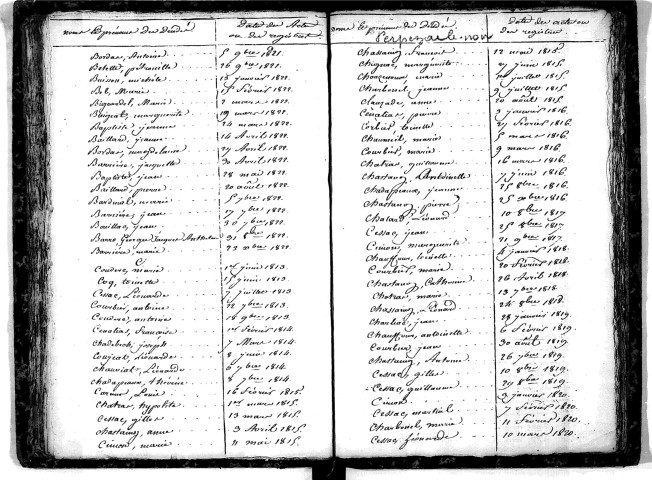 noms et prénoms du décédé Date des Actes ou des registres
Bordas, Antoine 5 9bre 1821.
Betette, pétronille 26 9bre 1821.
Buisson, michele 13 janvier 1822.
Bob, Marie 15 février 1822.
Bigardel, Marie 2 mars 1822.
Bugeat, marguerite 19 mars 1822.
Baptiste, jeanne 24 mars 1822.
Baillard, jeanne 14 Avril 1822.
Bordas, magdelaine 29 Avril 1822.
Barrière, jacquette 30 Avril 1822.
Baptiste, jean 28 mai 1822.
Baillard, pierre 20 août 1822.
Bardinal, marie 5 7bre 1822.
Barrière, jean 17 7bre 1822.
Bouillac, jean 30 7bre 1822.
Barre George 31 8bre 1822.
Barriere, marie 23 xbre 1822.
C
Couderc, marie 1er juin 1813.
Coq, toinette 15 juin 1813.
Cessac, Léonarde 7 juillet 1813.
Courbier, antoine 22 7bre 1813.
Couderc, antoine 18 9bre 1813.
Cenatias, francoise 1er février 1814.
Chadebech, joseph 7 Mars 1814.
Coujeat, Léonarde 8 juin 1814.
Chauviat, Léonarde 6 7bre 1814.
Chadapeaux, thérèse 8 7bre 1814.
Cornu, Louis 16 février 1815.
Chatras, hypolite 1er mars 1815.
Cessac, gilles 13 mars 1815.
Chastaing, anne 3 Avril 1815.
Cimon, marie 11 mai 1815.
noms et prénoms du décédé Date des actes ou des registres
Chassaing, francois 12 mai 1815.
Chignac, marguerite 21 juin 1815.
marie juillet 1815.
Charbonel, jeanne 9 juillet 1815.
Clauzade, anne 20 août 1815.
Cenatias, pierre 3 janvier 1816.
Corbier, toinette 27 février 1816.
Chaumeil, marie 5 mars 1816.
Courbier, marie 9 mars 1816.
Chatras, guillaume 16 mars 1816.
Chastaing, 7 juin 1816.
Chadapeaux, jeanne 25 8bre 1816.
Chastaing, pierre 25 xbre 1816.
Chatard, Léonard 10 8bre 1817
Cessac, jean 25 8bre 1817
Cimon, marguerite 21 9bre 1817
Chauffour, toinette 4 janvier 1818.
Courbier, marie 20 février 1818.
Chastaing, Catherine 26 Avril 1818.
Chatras, marie 13 7bre 1818.
Chassaing, Léonard 24 8bre 1818.
Charliac, jean 28 janvier 1819.
Chauffour, antoinette 6 février 1819.
Courbier, jean 30 avril 1819.
Chastaing, Antoine 26 7bre 1819.
Cessac, gilles 10 8bre 1819.
Cessac, guillaume 29 8bre 1819.
Cimon 3 janvier 1820.
Cessac, martial 7 février 1820.
Charbonel, marie 11 février 1820.
Cessac, Léonarde 10 mars 1820.